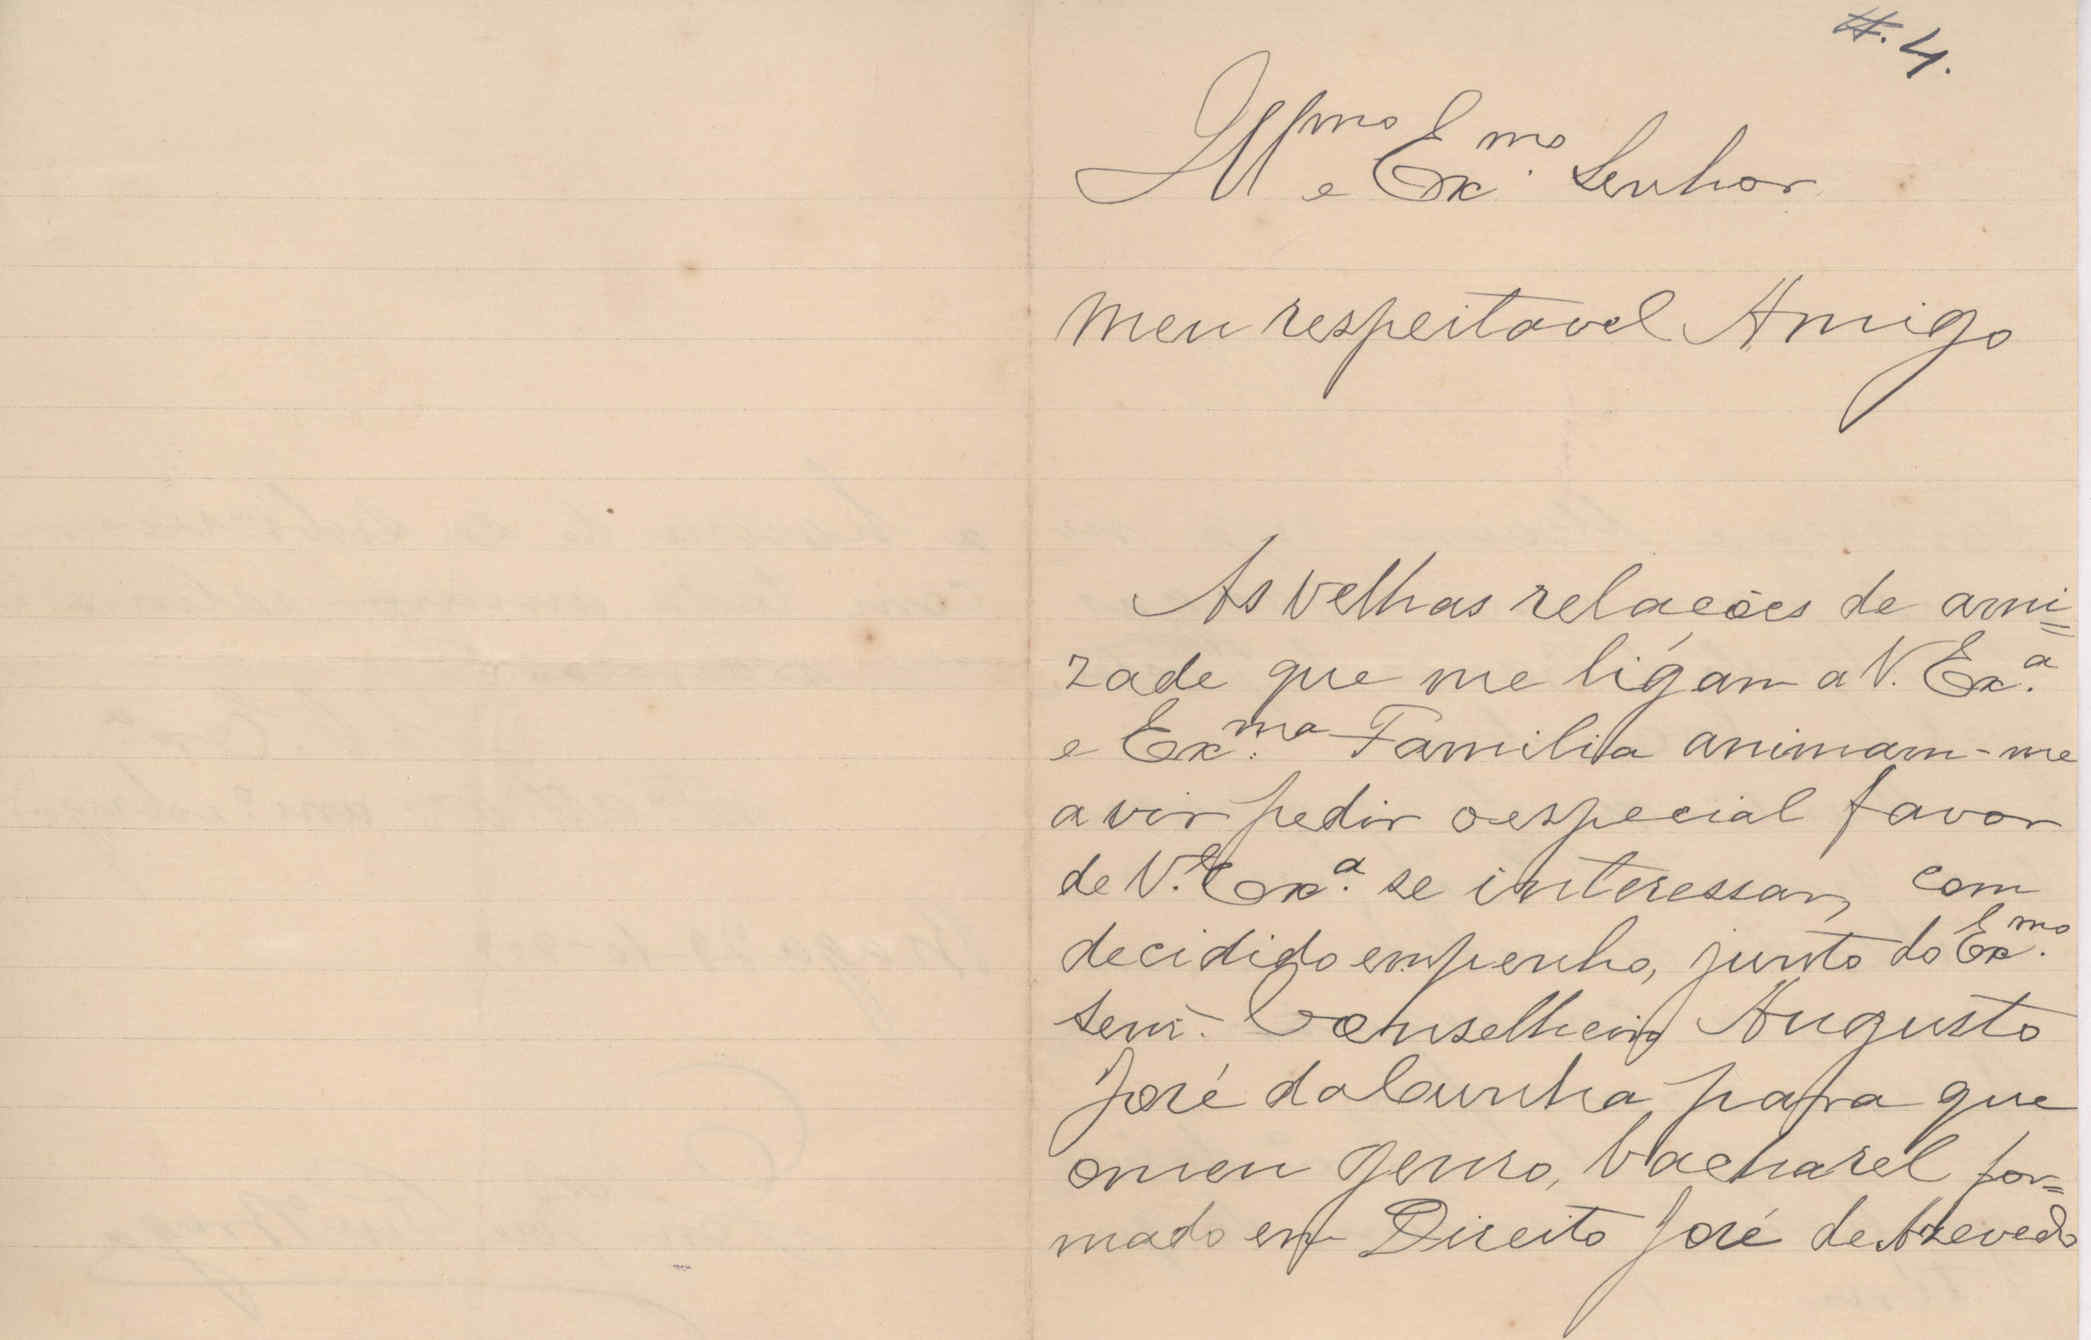 #.4.
Ill.mo e Ex.mo Senhor
Meu respeitavel Amigo
As velhas relações de ami=
zade que me lígam a V. Ex.a
e Ex.ma Familia animam-me
a vir pedir o especial favor
de V. Ex.a se interessar, com
decidido empenho, junto do Ex.mo
Senr. Conselheiro Augusto
José da Cunha para que
o meu genro, bacharel for=
mado em Direito José de Azevedo